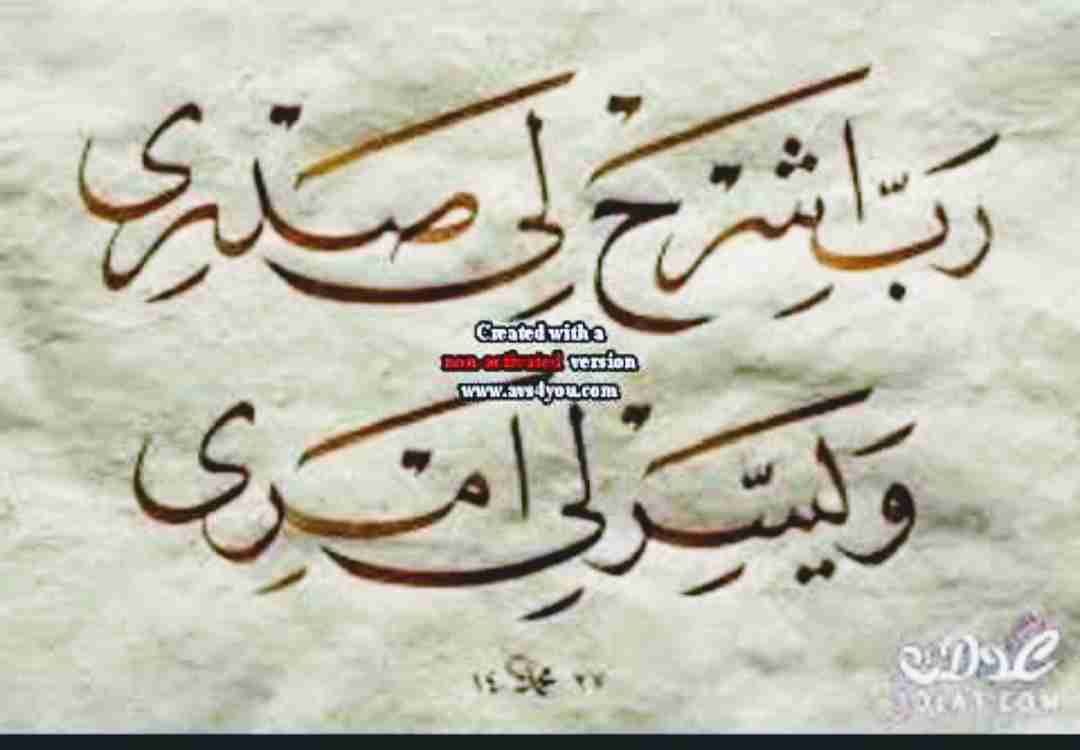 رَبِّ اشْرَحْ لِي صَدْرِي
Created with a
non-activated version
www.avs4you.com
وَيَسِّرْ لِي أَمْرِي
عدلات